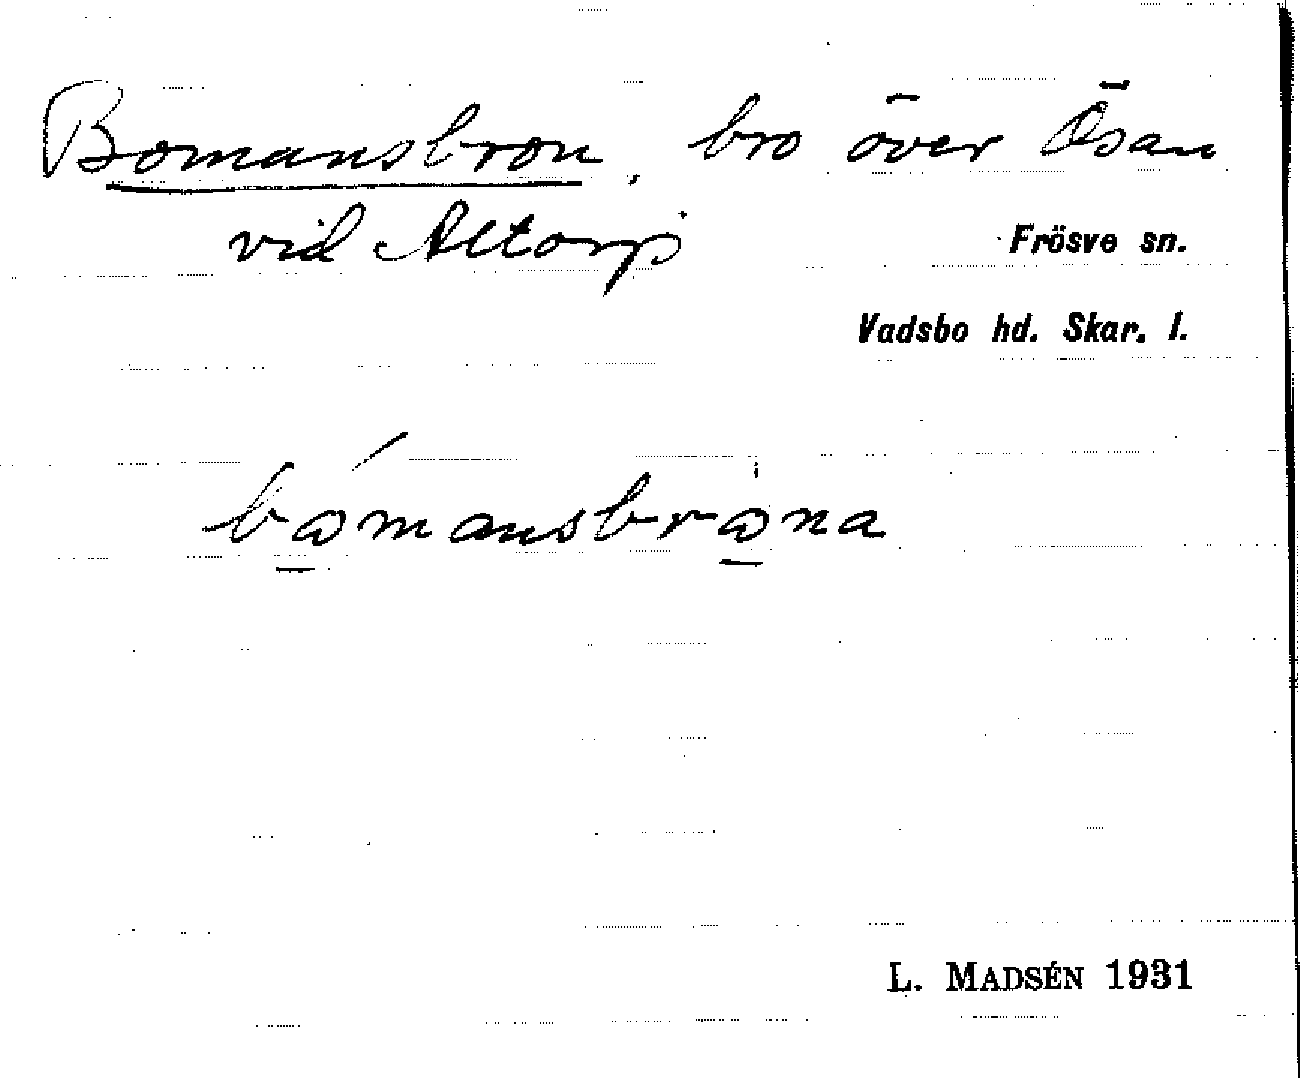 Bomansbron, bro över Ösan
vid Altorp
Frösve sn.
Vadsbo hd. Skar. l.
bómansbrona
L. MADSÉN 1931